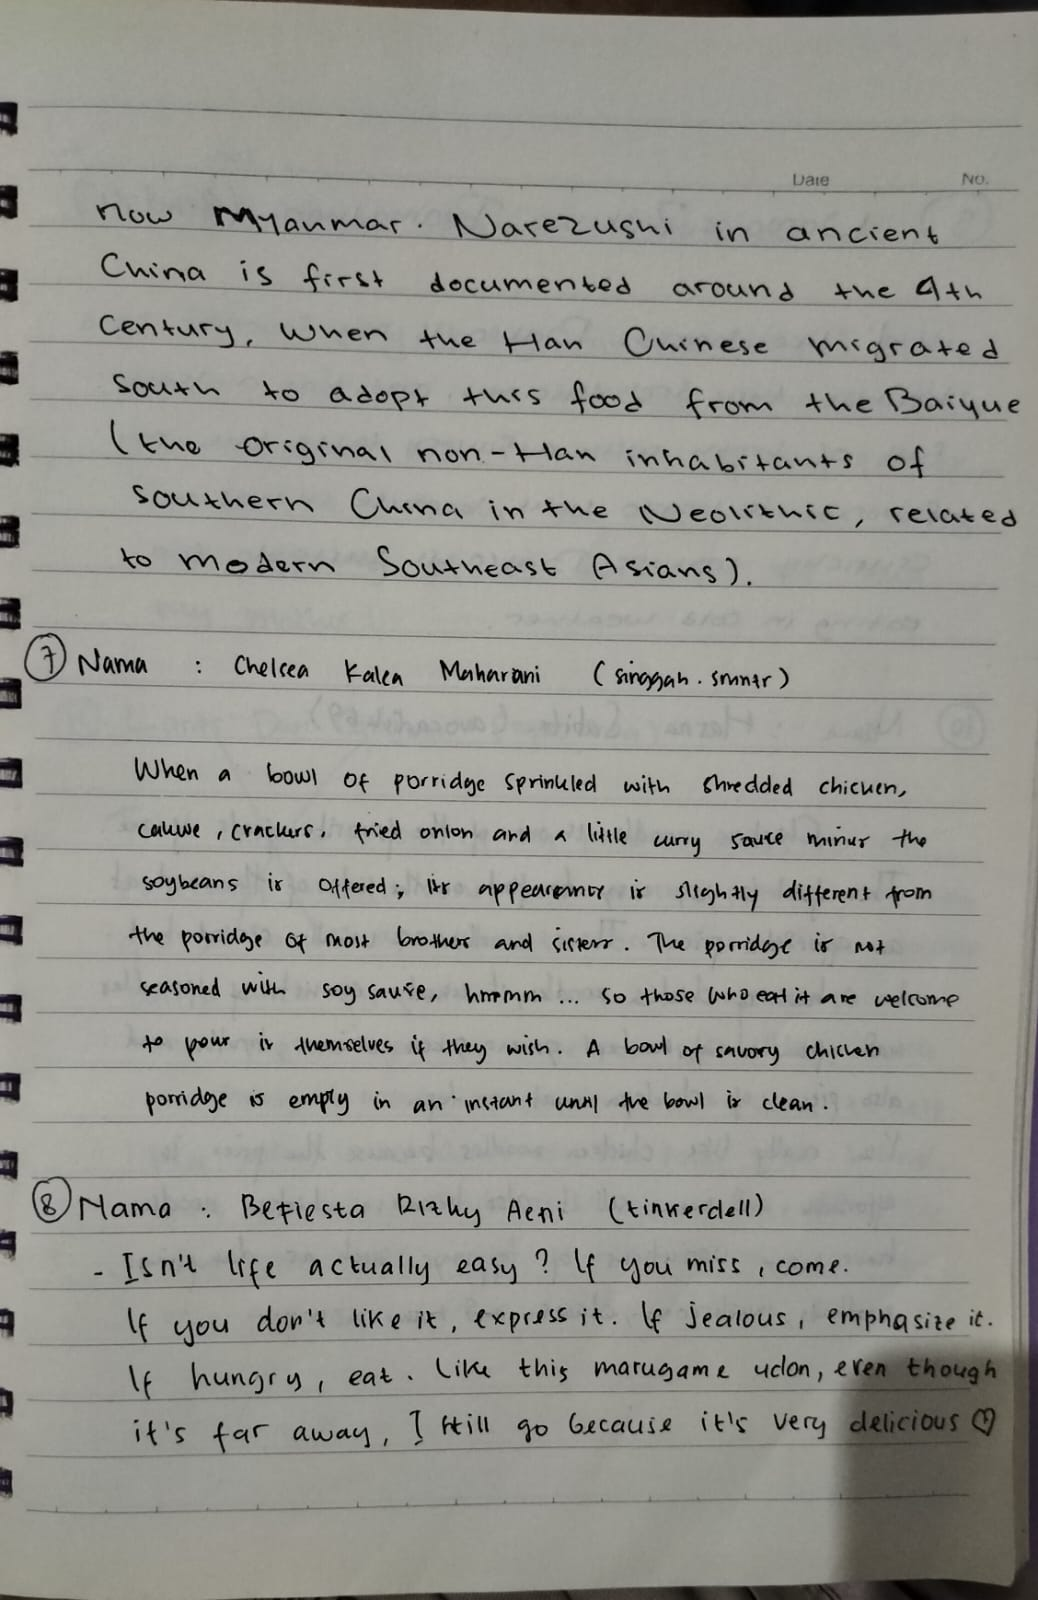 Date No.
now Myanmar. Narezushi in ancient
China is first documented around the 4th
Century, when the Han Chinese migrated
South to adopt this food from the Baiyue
(the original non-Han inhabitants of
Southern China in the Neolithic, related
to modern Southeast Asians).
7 Nama : Chelsea Kalea Maharani (singgah.smntr)
When a bowl of porridge sprinkled with shredded chicken,
cakwe, crackers, fried onion and a little curry sauce minus the
soybeans is offered; its appearance is slightly different from
the porridge of most brothers and sisters. The porridge is not
seasoned with soy sauce, hmmm ... so those who eat it are welcome
to pour it themselves if they wish. A bowl of savory chicken
porridge is empty in an instant until the bowl is clean.
8 Nama : Befiesta Rizky Aeni (tinkerdell)
- Isn't life actually easy? If you miss, come.
If you don't like it, express it. If jealous, emphasize it.
If hungry, eat. Like this marugame udon, even though
it's far away, I still go because it's very delicious ♡